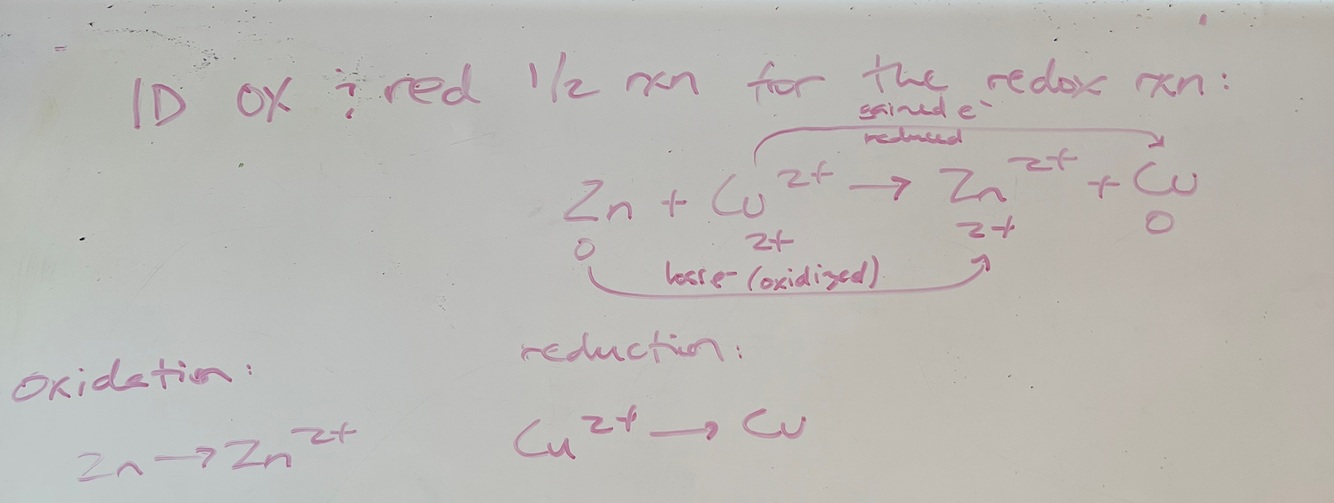 ID OX & red 1/2 rxn for the redox rxn:
gained e-
reduced
Zn + Cu²⁺ → Zn²⁺ + Cu
0 2+ 2+ 0
loss e- (oxidized)
oxidation:
Zn → Zn²⁺
reduction:
Cu²⁺ → Cu